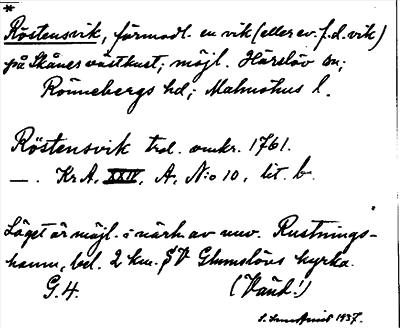 *
Röstensvik, förmodl. en vik (eller ev. f.d. vik)
på Skånes västkust; möjl. Härslöv sn;
Rönnebergs hd; Malmöhus l.
Röstensvik trol. omkr. 1761.
—. Kr.A. XXIV, A, N:o 10, lit. b.
Läget är möjl. i närh. av nuv. Rustnings-
hamn, bel. 2 km. SV Glumslövs kyrka.
G.4. (Vänd!)
1937.